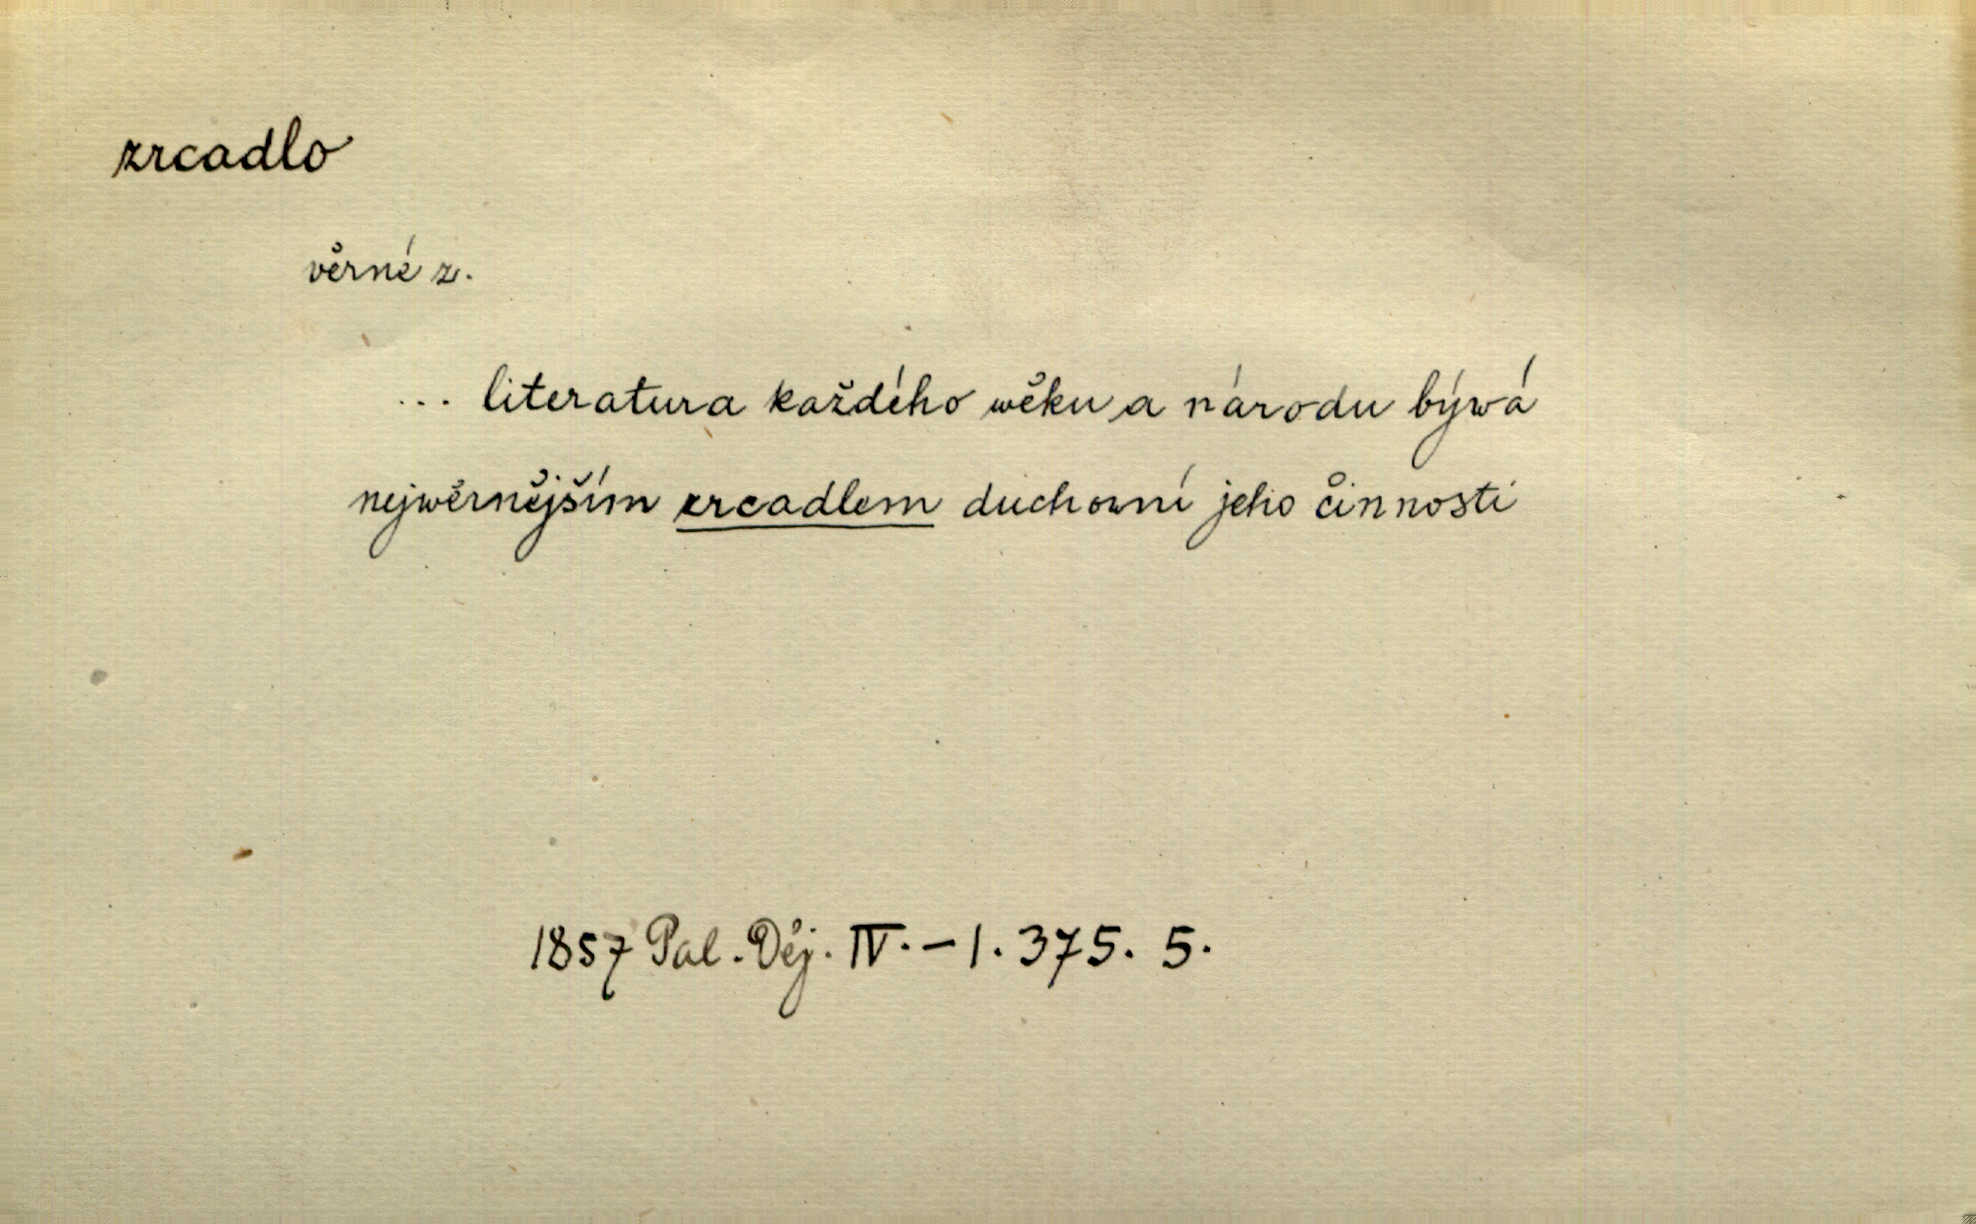 zrcadlo
věrné z.
... literatura každého wěku a národu býwá
nejwěrnějším zrcadlem duchowní jeho činnosti
1857 Pal. Děj. IV. – 1. 375. 5.